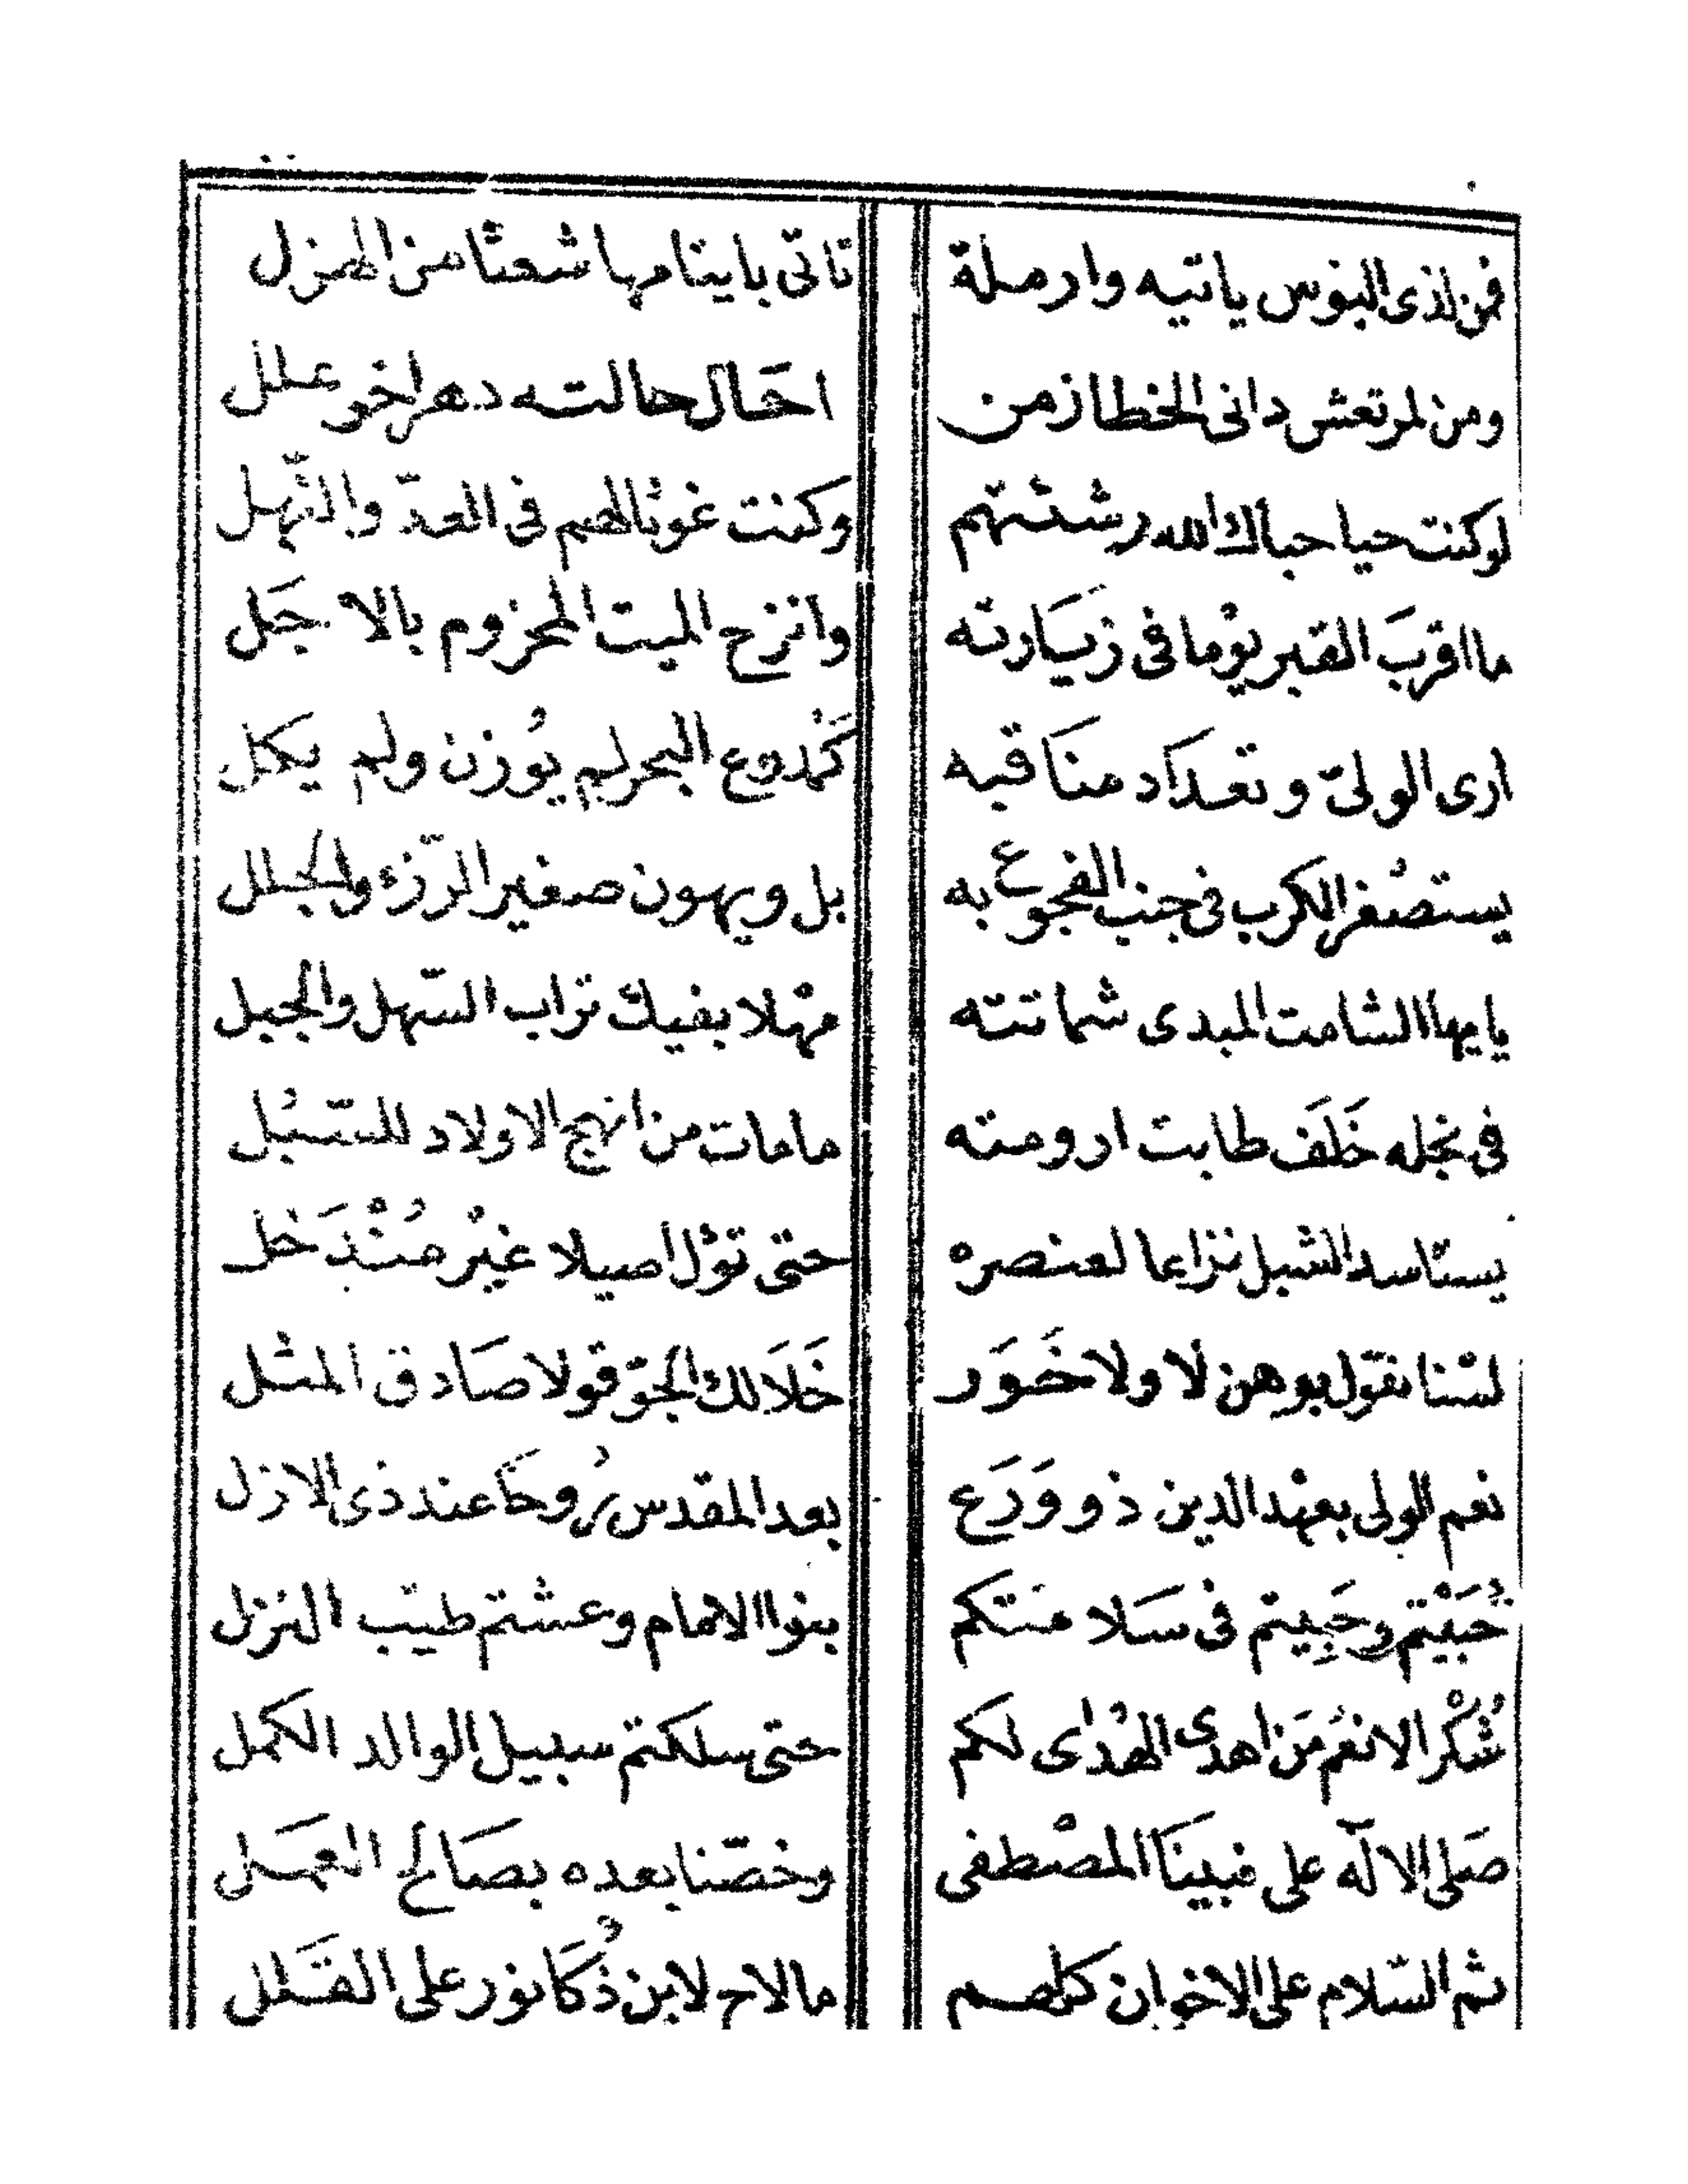 فمن لذى البؤس ياتيه وارملة تاتى باينامها شعثا من الهزل
ومن لمرتعش دانى الخطا زمن احَال حالته دهر اخو علل
لو كنت حيا حباك الله رشئتهم وكنت غوثا لهم فى العدّ والنّهل
ما اقربَ القبر يوْما فى زيَارته وانزح الميت المحزوم بالاجَل
ارى الولىّ وتعدَاد منَاقبه كَمْدوع البحر لم يُوزن ولم يكل
يستصْغر الكرب فى جنب الفجوع به بل ويهون صغير الرّزء والجلل
يايها الشامت المبدى شماتته مهْلا بفيك تراب السّهل والجبل
فى نجله خَلَف طابت ارومته مامات من انهج الاولاد للسّبُل
يستاسد الشبل نزاعا لعنصره حتى تؤل اصيلا غيْر مُنْدَخل
لسْنا نقوّل بوهن لا ولا خَوَر خَلَا لك الجوّ قولا صَادق المثل
نعم الولى بعهْد الدين ذو وَرَع بعد المقدس رُوحَا عند ذى الازل
حُبَيْتم وحَبِيتم فى سَلامتكم بنوا الامام وعشتم طيّب النزل
شُكْر الانعُم مَن اهدى الهدْاى لكم حتى سلكتم سبيل الوالد الكمل
صَلى الالَه على نبينَا المصْطفى وخصّنا بعده بصَالح العمَل
ثم السّلام على الاخوان كلهم مالاح لابن ذُكَا نور على القَلل